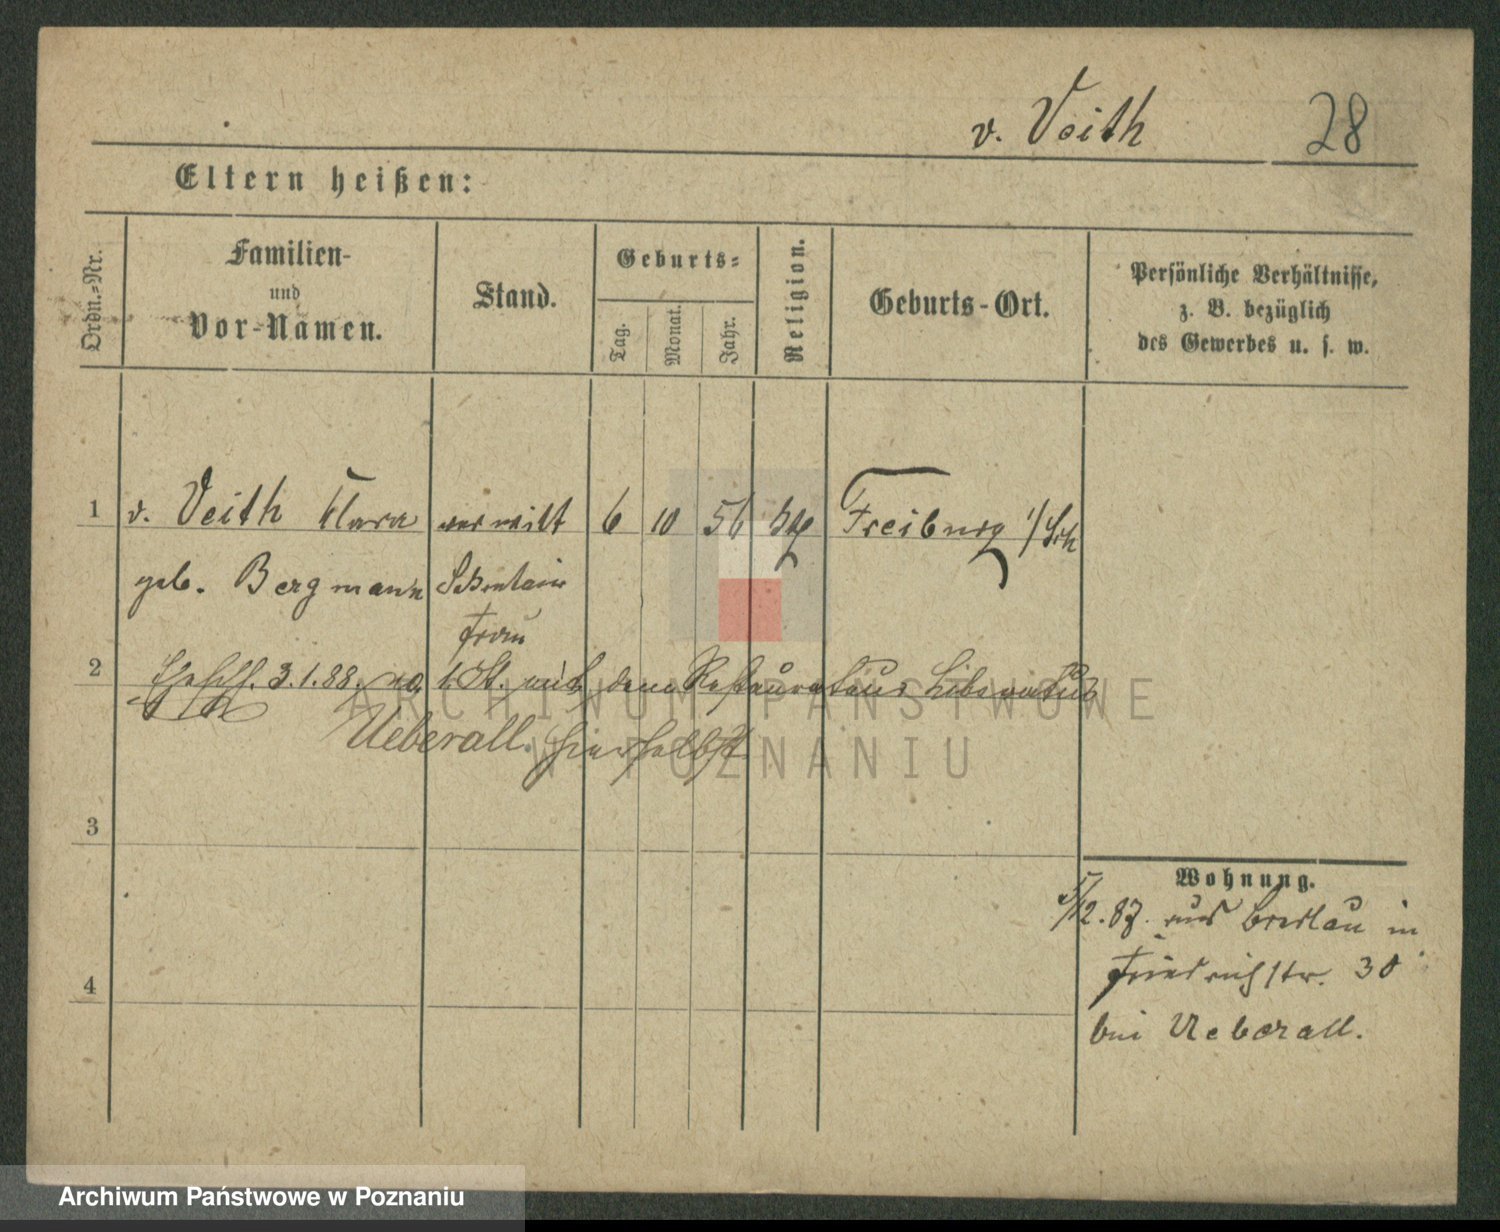 v. Veith 28
Eltern heißen:
Ordn.-Nr.
Familien-
und
Vor-Namen.
Stand.
Geburts-
Tag.
Monat.
Jahr.
Religion.
Geburts-Ort.
Persönliche Verhältnisse,
z. B. bezüglich
des Gewerbes u. s. w.
1 v. Veith Clara 6 10 56 Freiburg i/Sch
geb. Bergmann
Frau
2 Eheschl. 3.1.88. mit dem Restaurateur Liberatus
Ueberall. hierselbst
3
4
Wohnung.
5/12.87. aus Breslau in
Friedrichstr. 30
bei Ueberall.
ARCHIWUM PAŃSTWOWE
W POZNANIU
Archiwum Państwowe w Poznaniu